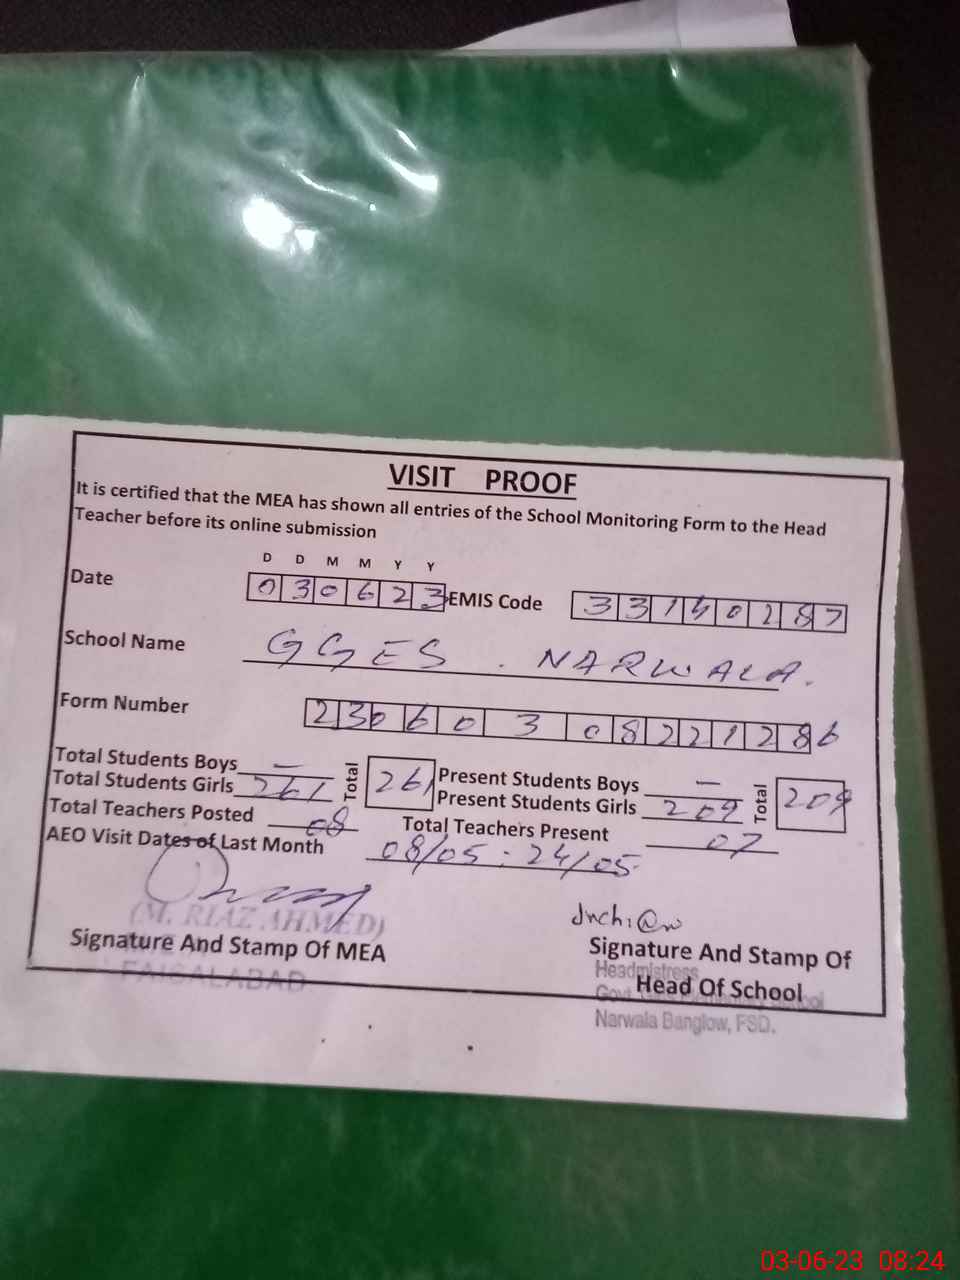 VISIT PROOF
It is certified that the MEA has shown all entries of the School Monitoring Form to the Head
Teacher before its online submission
D D M M Y Y
Date 030623 EMIS Code 33150287
School Name GGES. NARWALA.
Form Number 23060308221286
Total Students Boys — Total 261 Present Students Boys — Total 209
Total Students Girls 261 Present Students Girls 209
Total Teachers Posted 08 Total Teachers Present 07
AEO Visit Dates of Last Month 08/05 - 24/05
(M. RIAZ AHMED)
Signature And Stamp Of MEA Signature And Stamp Of
FAISALABAD
Headmistress
Head Of School
Govt. Girls Elementary School
Narwala Banglow, FSD.
03-06-23 08:24